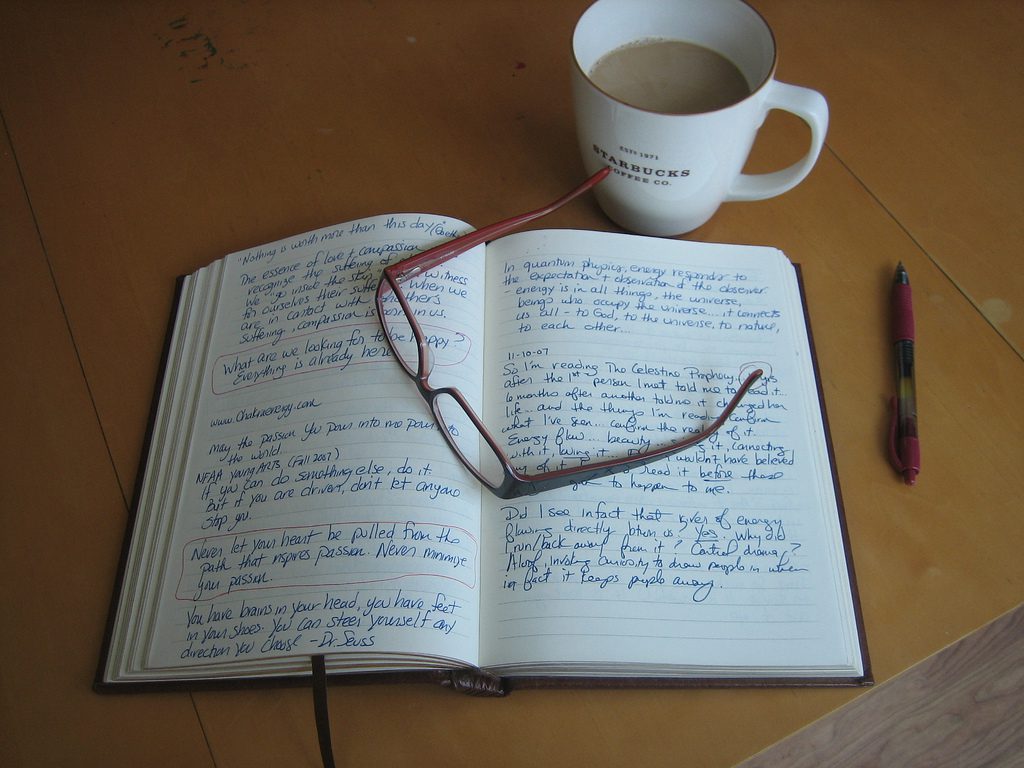 ESTD 1971
STARBUCKS
COFFEE CO.
"Nothing is worth more than this day" (Goethe)
The essence of love + compassion
recognize the suffering of
We go inside the witness
for ourselves their suffer when we
are in contact with others
suffering, compassion is born in us.
What are we looking for to be happy?
Everything is already here
www.Chakraenergy.com
may the passion you pour into me pour
the world.
NFAA young ARTS (Fall 2007)
If you can do something else, do it.
But if you are driven, don't let anyone
stop you.
Never let your heart be pulled from the
path that inspires passion. Never minimize
your passion.
You have brains in your head, you have feet
in your shoes. You can steer yourself any
direction you choose - Dr. Seuss
In quantum physics, energy responds to
the expectation + observation of the observer
- energy is in all things, the universe,
beings who occupy the universe... it connects
us all - to God, to the universe, to nature,
to each other...
11-10-07
So I'm reading The Celestine Prophecy, yrs
after the 1st person I met told me to read it...
6 months after another told me it changed her
life... and the things I'm read confirm
what I've seen... confirm the reality of it.
Energy flow... beauty it, connecting
with it, loving it wouldn't have believed
any of it read it before these
to happen to me.
Did I see in fact that rivers of energy
flowing directly between us. Yes. Why did
I run/back away from it? Control drama?
Aloof, invoking curiosity to draw people in when
in fact it keeps people away.